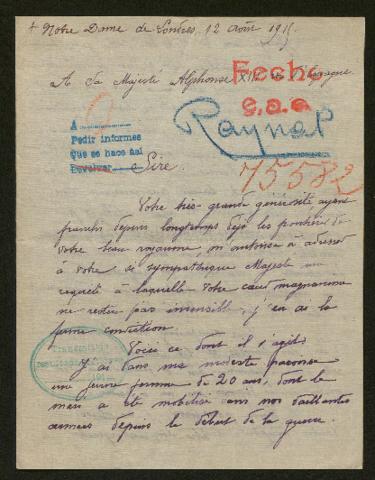 + Notre Dame de Londres, 12 Août 1915
A Sa Majesté Alphonse XIII d'Espagne
Fecho
e.a.e
Raynal
A
Pedir informes
Que se hace así
Devolver
75582
Sire
Votre très grande générosité ayant
franchi depuis longtemps déjà les frontières de
votre beau royaume, m'autorise à adresser
à votre si sympathique Majesté une
requête à laquelle Votre cœur magnanime
ne restera pas insensible, j'en ai la
ferme conviction.
Voici ce dont il s'agit:
J'ai dans ma modeste paroisse
une jeune femme de 20 ans, dont le
mari a été mobilisé dans nos vaillantes
armées depuis le début de la guerre.